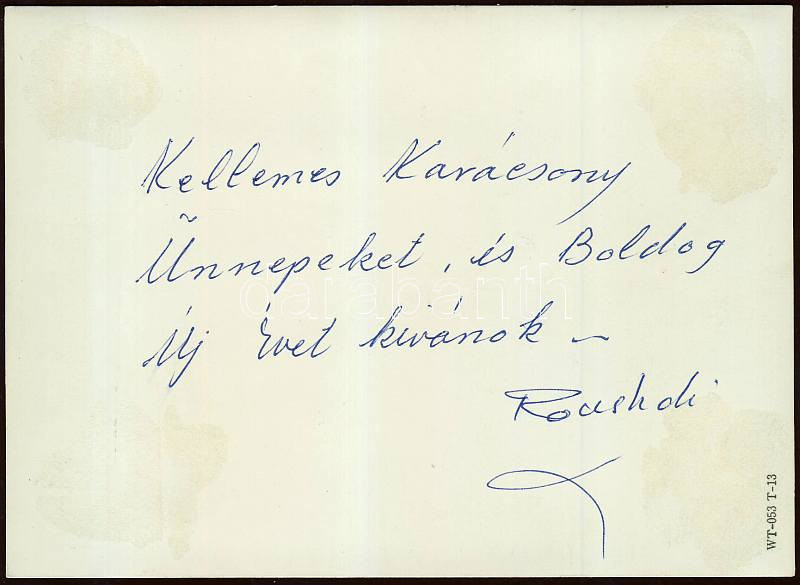 Kellemes Karácsony
Ünnepeket, és Boldog
Új Évet kívánok –
Roushdi
darabanth
WT-053 T-13